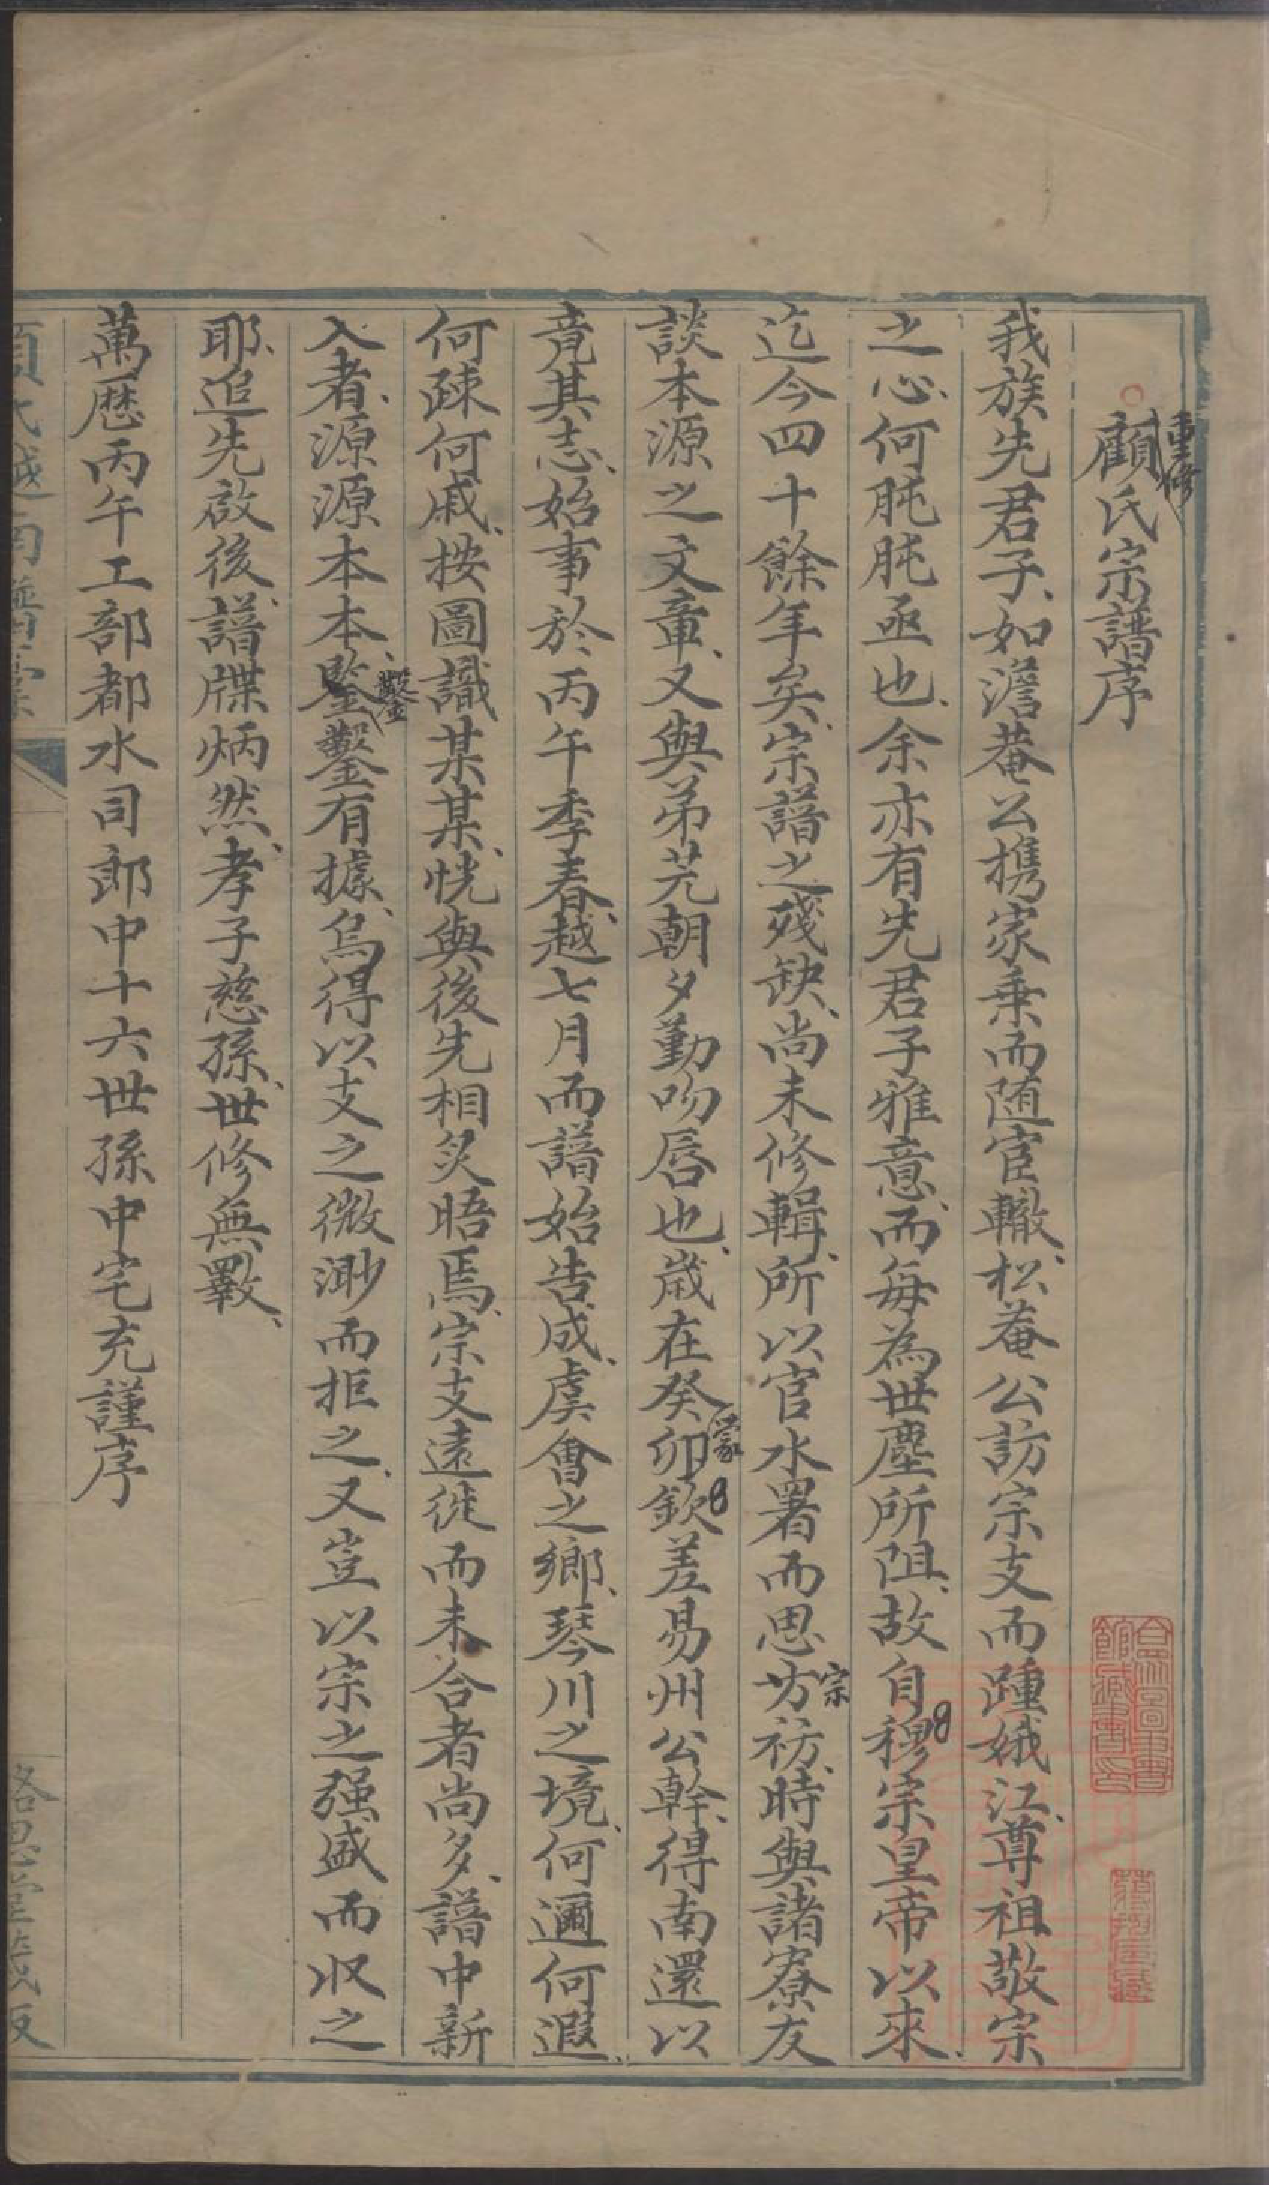 重修
顧氏宗譜序
我族先君子、如澹菴公携家乗而随宦轍、松菴公訪宗支而踵娥江、尊祖敬宗
之心、何肫肫亟也、余亦有先君子雅意、而每為世塵所阻、故自穆宗皇帝以來、
迄今四十餘年矣、宗譜之殘缺、尚未修輯、所以官水署而思方祊、時與諸寮友
宗
談本源之文章、又與弟芫朝夕勤吻唇也、歳在癸卯欽差易州公幹、得南還以
蒙
竟其志、始事於丙午季春、越七月而譜始告成、虞會之鄉、琴川之境、何邇何遐、
何疎何戚、按圖識某某、恍與後先相炙晤焉、宗支遠徙而未合者尚多、譜中新
入者、源源本本、鑿鑿有據、烏得以支之微渺而拒之、又豈以宗之强盛而収之
鑿
耶、追先啟後、譜牒炳然、孝子慈孫、世修無斁、
萬歴丙午工部都水司郎中十六世孫中宅充謹序